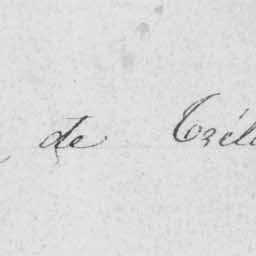 de Trél